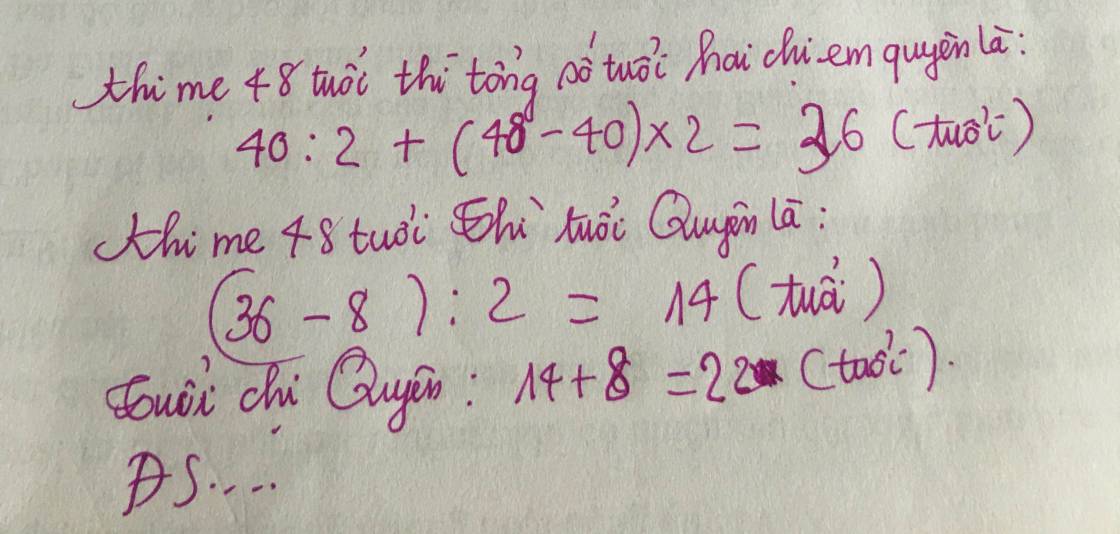 Khi mẹ 48 tuổi thì tổng số tuổi hai chị em quyên là:
40 : 2 + (48 - 40) x 2 = 36 (tuổi)
Khi mẹ 48 tuổi Thì tuổi Quyên là:
(36 - 8) : 2 = 14 (tuổi)
Tuổi chị Quyên: 14 + 8 = 22 (tuổi).
ĐS....